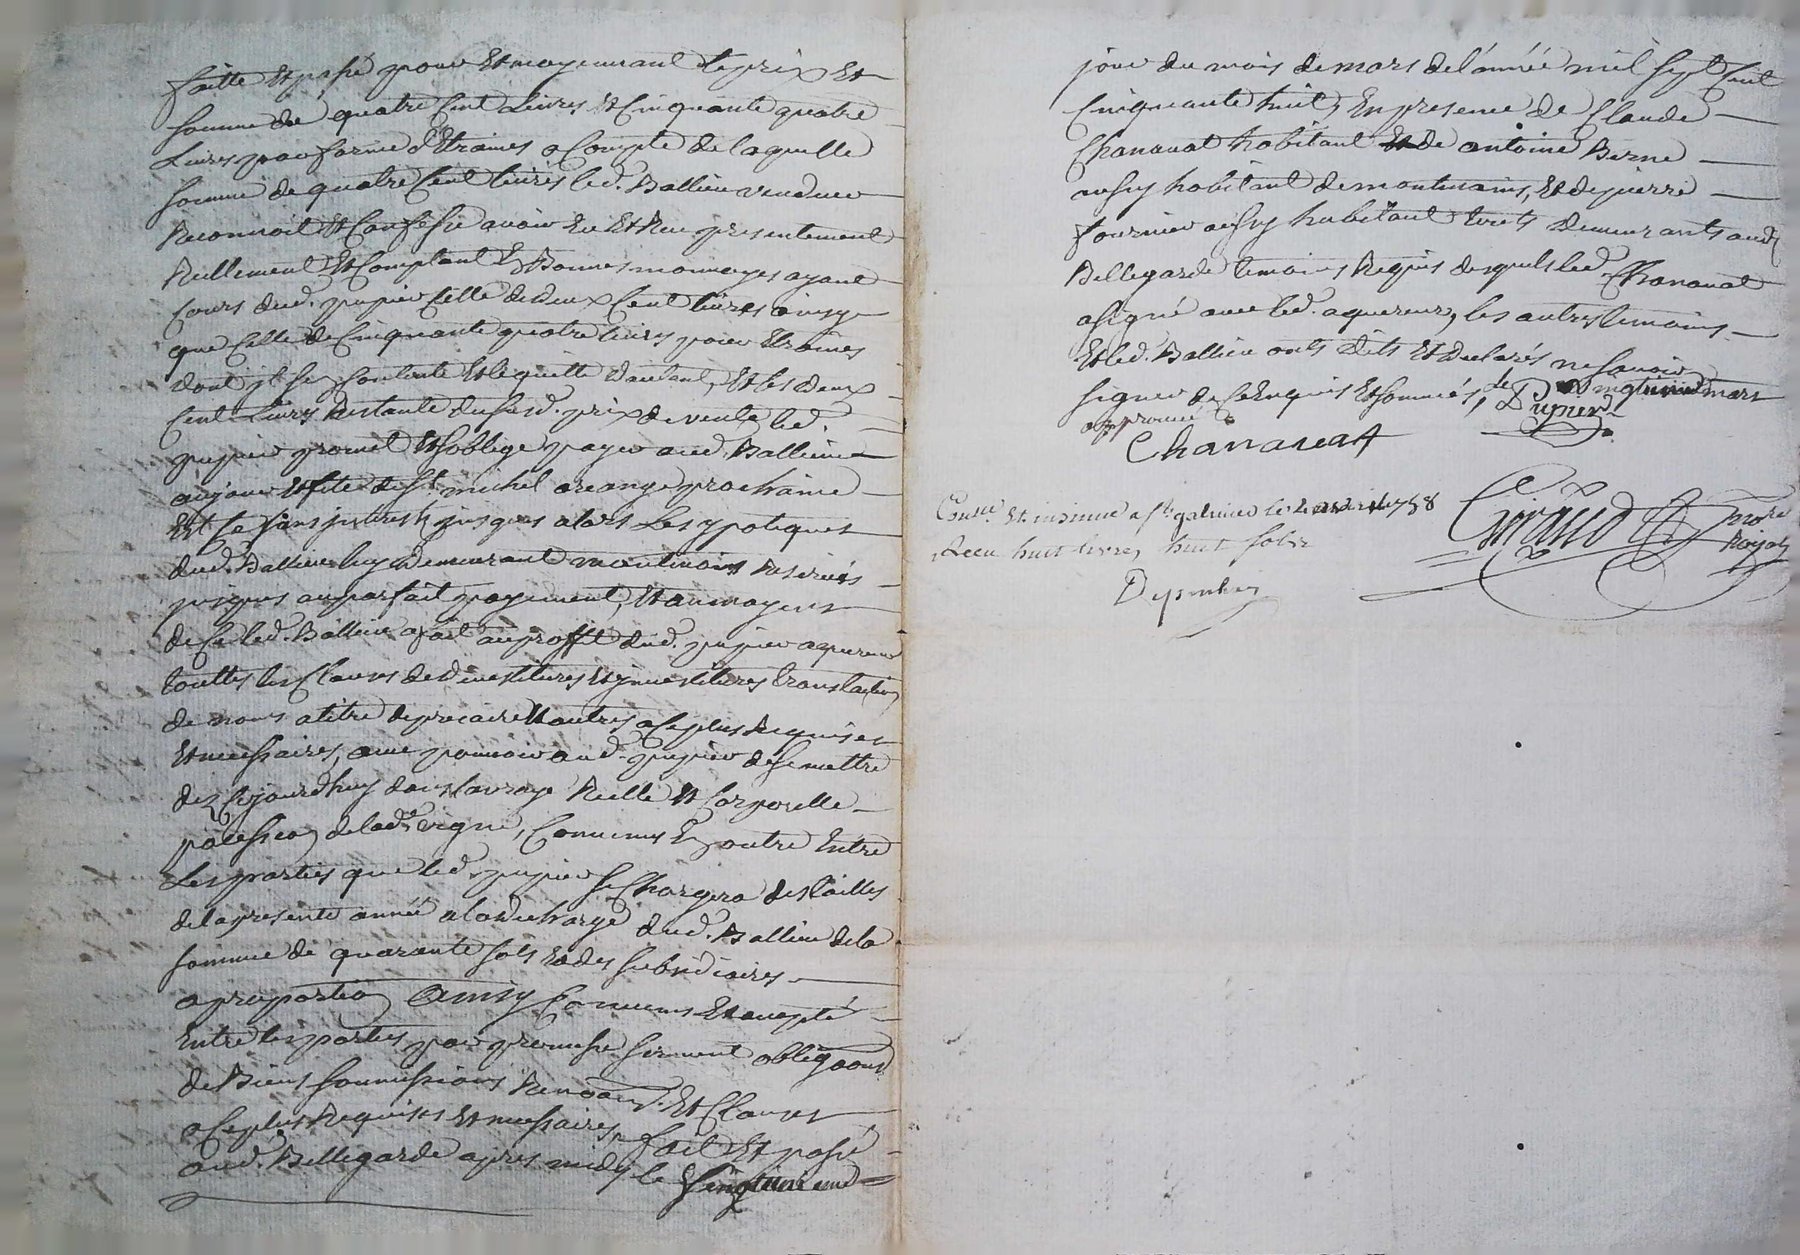 faitte Et passé pour Et moyennant le prix Et
somme de quatre Cent Livres Et Cinquante quatre
Livres par forme d'Etraines a Compte de laquelle
somme de quatre Cent livres led. Ballieu vendeur
Reconnoit Et Confesse avoir Eu Et Reçu presentement
Reellement Et Comptant En Bonnes monnoyes ayant
Cours dud. pupier Celle de deux Cent livres ainsy
que Celle de Cinquante quatre livres pour Etraines
dont jl se Contente Et le quitte d'autant, Et les deux
Cent Livres Restante du susd. prix de vente led.
pupier promet Et s'oblige payer aud. Ballieu
au jour Et fete de St. michel archange prochaine
Et Ce sans jnterest jusques alors Les ypoteques
dud. Ballieu luy Demeurant neantmoins Reservés
jusques au parfait payement, Et au moyens
de Ce led. Ballieu a fait au proffit dud. pupier aquereur
touttes les Clauses de devestitures Et jnvestitures translation
de noms a titre de precaire Et autres a Ce plus Requises
Et necessaires, avec pouvoir aud. pupier de se mettre
dez Cejourd'huy dans la vraye Reelle Et Corporelle
possession de lade. vigne, Convenus En outre Entre
Les parties que led. pupier se Chargera des tailles
de la presente année a la decharge dud. Ballieu de la
somme de quarante sols Et des subsidiaires
a proportion Ainsy Convenus Et accepté
Entre les parties par promesse serment obligaons
de Biens soumissions Renoaons. Et Clauses
a Ce plus Requises Et necessaires, fait Et passé
aud. Bellegarde apres midy le Vingtunieme
jour du mois de mars de l'année mil sept Cent
Cinquante huit, En presence de Claude
Chanavat habitant Et de antoine Berne
aussy habitant de montverains, Et de pierre
fournier aussy habitant touts demeurants aud.
Bellegarde temoins Requis desquels led. Chanavat
a signé avec led. aquereur, les autres temoins
Et led. Ballieu onts dits Et declarés ne savoir
signer de Ce Enquis Et sommés, le vingtunieme mars
approuvé
Pupier
Chanavat
Con.lé Et insinué a St. galmier le avril 1758
Reçu huit livres huit sols
Giraud Nore Royal